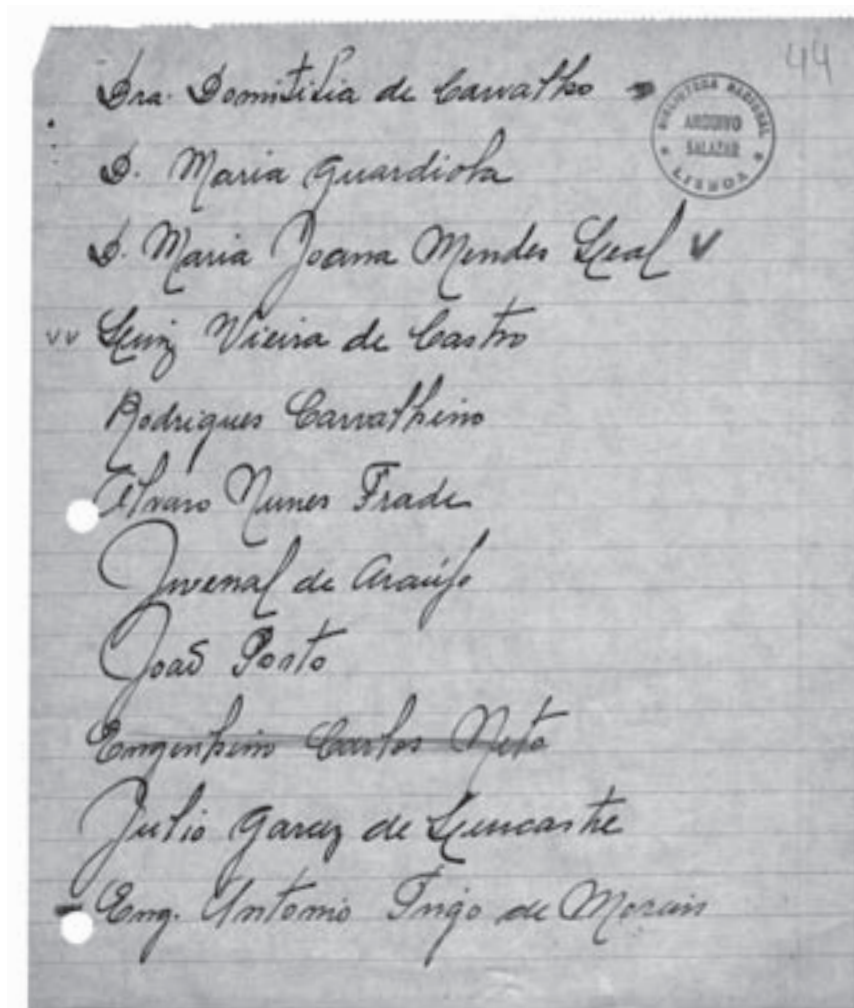 44
Dra. Domitilia de Carvalho
BIBLIOTECA NACIONAL
ARQUIVO
SALAZAR
LISBOA
D. Maria Guardiola
D. Maria Joana Mendes Leal v
vv Luiz Vieira de Castro
Rodrigues Carvalheiro
Alvaro Nunes Frade
Juvenal de Araújo
João Porto
Engenheiro Carlos Neto
Julio Garcez de Lencastre
Eng. Antonio Trigo de Morais